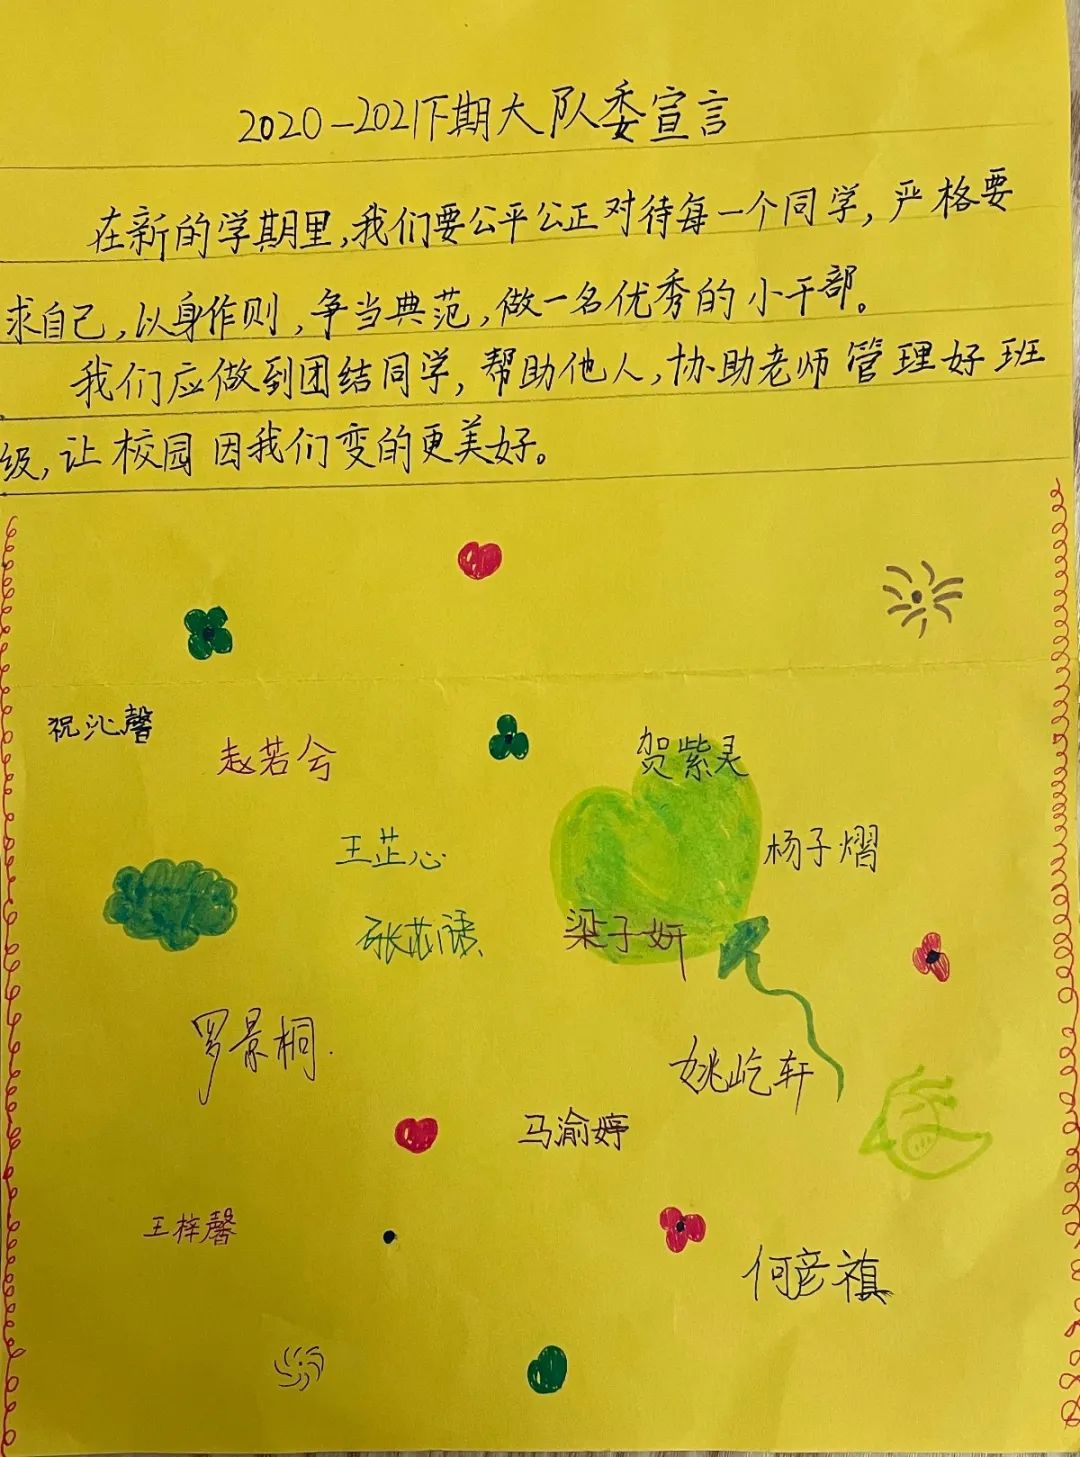 2020-2021下期大队委宣言
在新的学期里,我们要公平公正对待每一个同学,严格要
求自己,以身作则,争当典范,做一名优秀的小干部。
我们应做到团结同学,帮助他人,协助老师管理好班
级,让校园因我们变的更美好。
祝沁馨
赵若兮
贺紫灵
王芷心
杨子熠
梁子妍
罗景桐.
姚屹轩
马渝婷
王梓馨
何彦禛